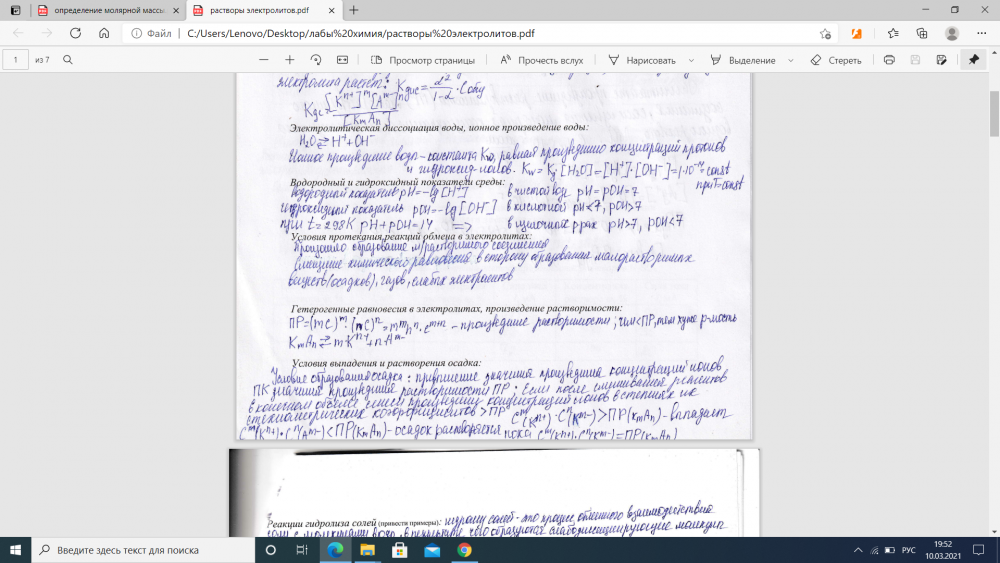 определение молярной массы.
растворы электролитов.pdf
Файл | C:/Users/Lenovo/Desktop/лабы%20химия/растворы%20электролитов.pdf
1 из 7
Просмотр страницы
Прочесть вслух
Нарисовать
Выделение
Стереть
электролита
Kдис = α²/(1-α) · Cобщ
Kдс = [Kⁿ⁺]ᵐ[Aᵐ⁻]ⁿ / [KmAn]
Электролитическая диссоциация воды, ионное произведение воды:
H₂O ⇄ H⁺ + OH⁻
Ионное произведение воды - константа Kw, равная произведению концентраций протонов
и гидроксид-ионов. Kw = [H₂O] = [H⁺]·[OH⁻] = 1·10⁻¹⁴ = const
при T=const
Водородный и гидроксидный показатели среды:
водородный показатель pH = -lg[H⁺] в чистой воде pH = pOH = 7
гидроксидный показатель pOH = -lg[OH⁻] в кислотной pH<7, pOH>7
при t = 298K pH + pOH = 14 => в щелочной pH>7, pOH<7
Условия протекания реакций обмена в электролитах:
Произошло образование м/растворимого соединения
смещение химического равновесия в сторону образования малорастворимых
веществ (осадков), газов, слабых электролитов
Гетерогенные равновесия в электролитах, произведение растворимости:
ПР = (mc)ᵐ·(nc)ⁿ = mᵐnⁿ·cᵐ⁺ⁿ - произведение растворимости; чем < ПР, тем хуже р-мость
KmAn ⇄ mKⁿ⁺ + nAᵐ⁻
Условия выпадения и растворения осадка:
Условие образования осадка: превышение значения произведения концентраций ионов
ПК значения произведения растворимости ПР. Если после смешивания реагентов
в конечном объёме смеси произведения концентраций ионов в степенях их
стехиометрических коэффициентов > ПР Cᵐ(Kⁿ⁺)·Cⁿ(Kᵐ⁻) > ПР(KmAn) - выпадает
Cᵐ(Kⁿ⁺)·Cⁿ(Aᵐ⁻) < ПР(KmAn) - осадок растворяется пока Cᵐ(Kⁿ⁺)·Cⁿ(Kᵐ⁻) = ПР(KmAn)
Реакции гидролиза солей (привести примеры): гидролиз солей - это процесс обменного взаимодействия
соли с молекулами воды, в результате чего образуются слабодиссоциирующие молекулы
Введите здесь текст для поиска
РУС
19:52
10.03.2021